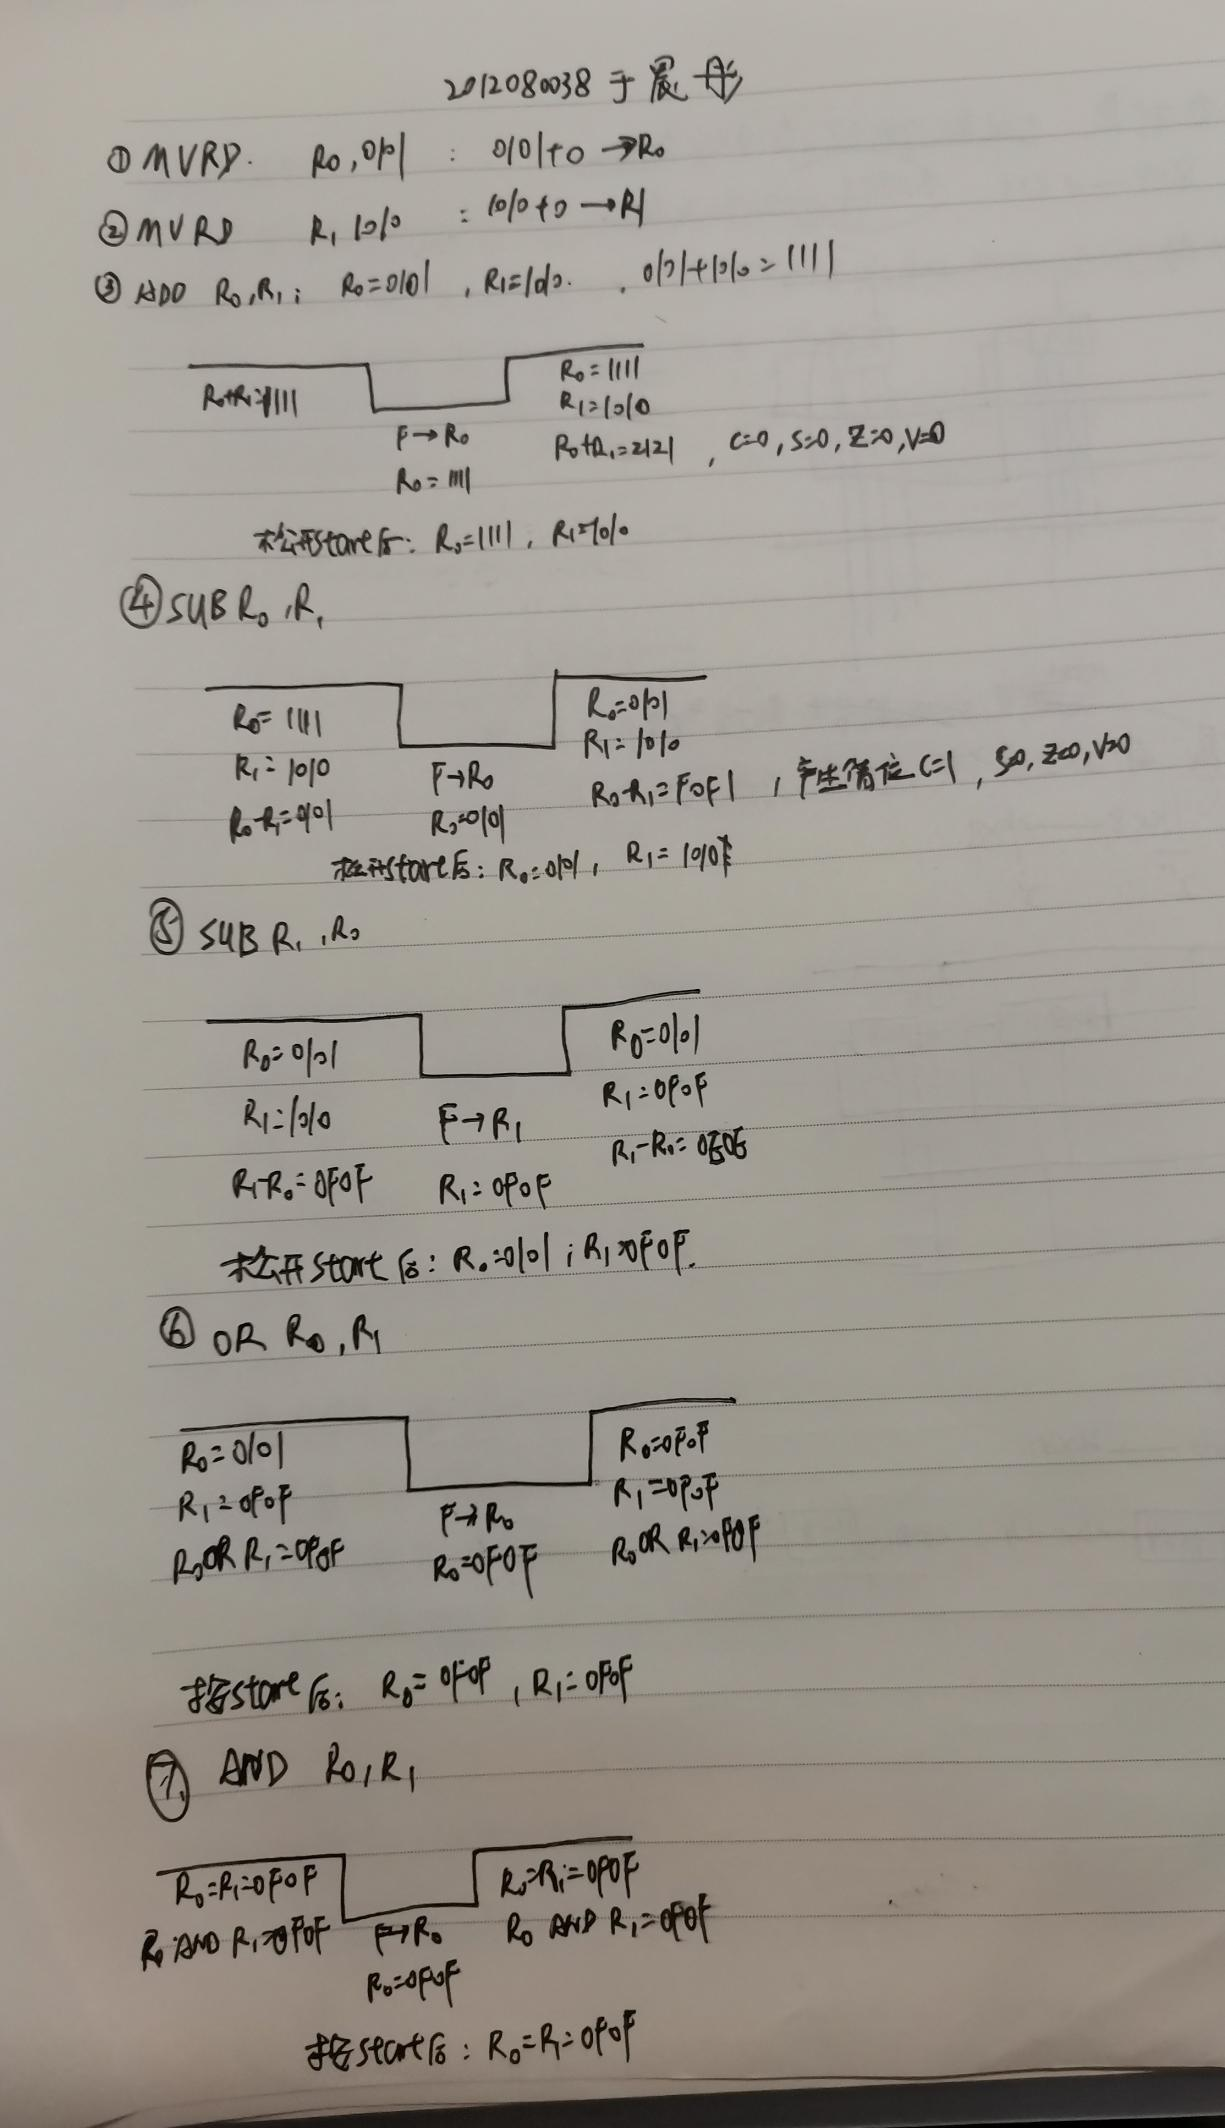 2012080038 于晨彤
① MVRD. R0, 0101 : 0101+0 →R0
② MVRD R1 1010 : 1010+0 →R1
③ ADD R0,R1; R0=0101, R1=1010. , 0101+1010=1111
R0+R1=1111
F→R0
R0=1111
R0=1111
R1=1010
R0+R1=2121, C=0, S=0, Z=0, V=0
松开start后: R0=1111, R1=1010
④ SUB R0,R1
R0=1111
R1=1010
R0-R1=0101
F→R0
R0=0101
R0=0101
R1=1010
R0-R1=F0F1, 产生借位C=1, S=0, Z=0, V=0
松开start后: R0=0101, R1=1010
⑤ SUB R1,R0
R0=0101
R1=1010
R1-R0=0F0F
F→R1
R1=0F0F
R0=0101
R1=0F0F
R1-R0=0E0E
松开start后: R0=0101; R1=0F0F.
⑥ OR R0,R1
R0=0101
R1=0F0F
R0 OR R1=0F0F
F→R0
R0=0F0F
R0=0F0F
R1=0F0F
R0 OR R1=0F0F
按start后: R0=0F0F, R1=0F0F
⑦ AND R0,R1
R0=R1=0F0F
R0 AND R1=0F0F
F→R0
R0=0F0F
R0=R1=0F0F
R0 AND R1=0F0F
按start后: R0=R1=0F0F